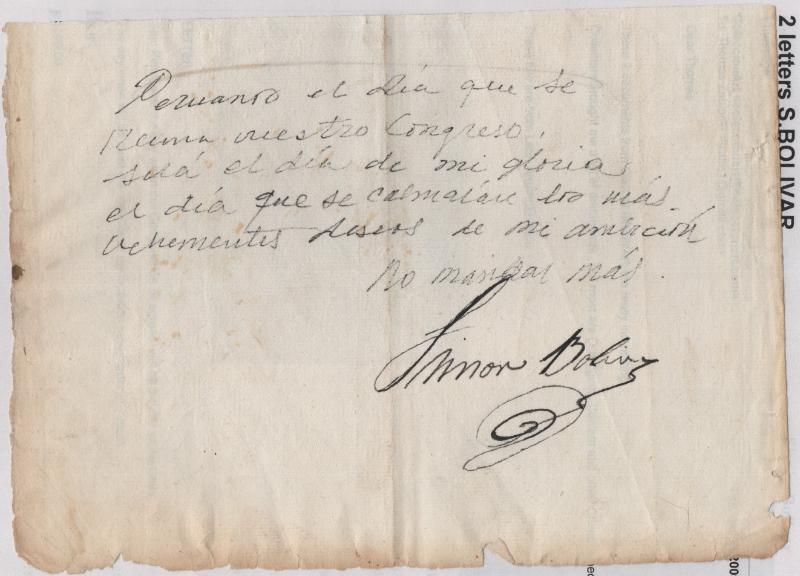 Peruanos el día que se
reuna vuestro Congreso.
será el día de mi gloria
el día que se calmarán los más
vehementes deseos de mi ambición
No mandar más.
Simon Bolivar
2 letters S.BOLIVAR
200